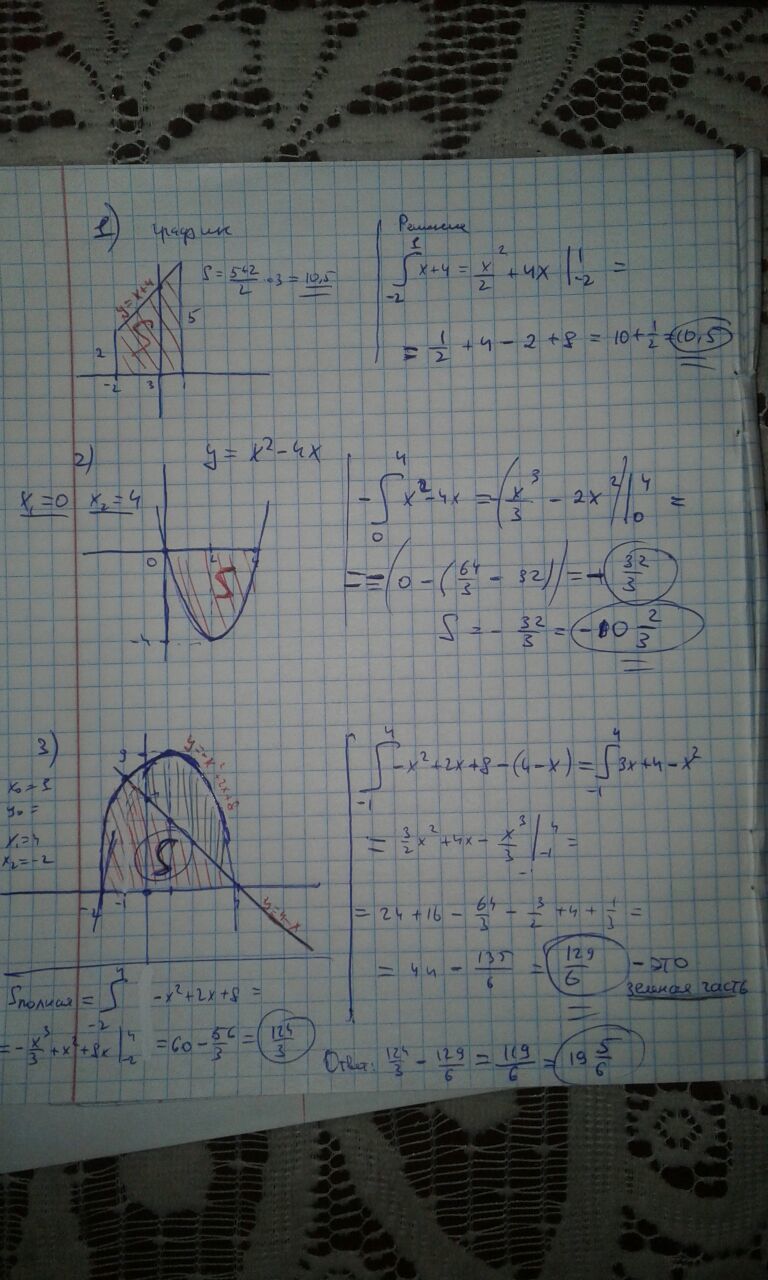 1) График
S = 5+2/2 · 3 = 10,5
y = x+4
S
2
5
-2 3
Решение
∫₋₂¹ x+4 = x²/2 + 4x |₋₂¹ =
= 1/2 + 4 - 2 + 8 = 10 + 1/2 = 10,5
2) y = x² - 4x
x₁ = 0 x₂ = 4
0 2
S
-4
- ∫₀⁴ x² - 4x = (x³/3 - 2x²) |₀⁴ =
= (0 - (64/3 - 32)) = 32/3
S = - 32/3 = - 10 2/3
3)
9
y = -x² + 2x + 8
x₀ = 3
y₀ =
x₁ = 4
x₂ = -2
S
-2 -1
y = 4 - x
∫₋₁⁴ -x² + 2x + 8 - (4 - x) = ∫₋₁⁴ 3x + 4 - x²
= 3/2 x² + 4x - x³/3 |₋₁⁴ =
= 24 + 16 - 64/3 - 3/2 + 4 + 1/3 =
= 44 - 135/6 = 129/6 - это
зелёная часть
Sполная = ∫₋₂⁴ -x² + 2x + 8 =
= -x³/3 + x² + 8x |₋₂⁴ = 60 - 56/3 = 124/3
Ответ: 124/3 - 129/6 = 119/6 = 19 5/6